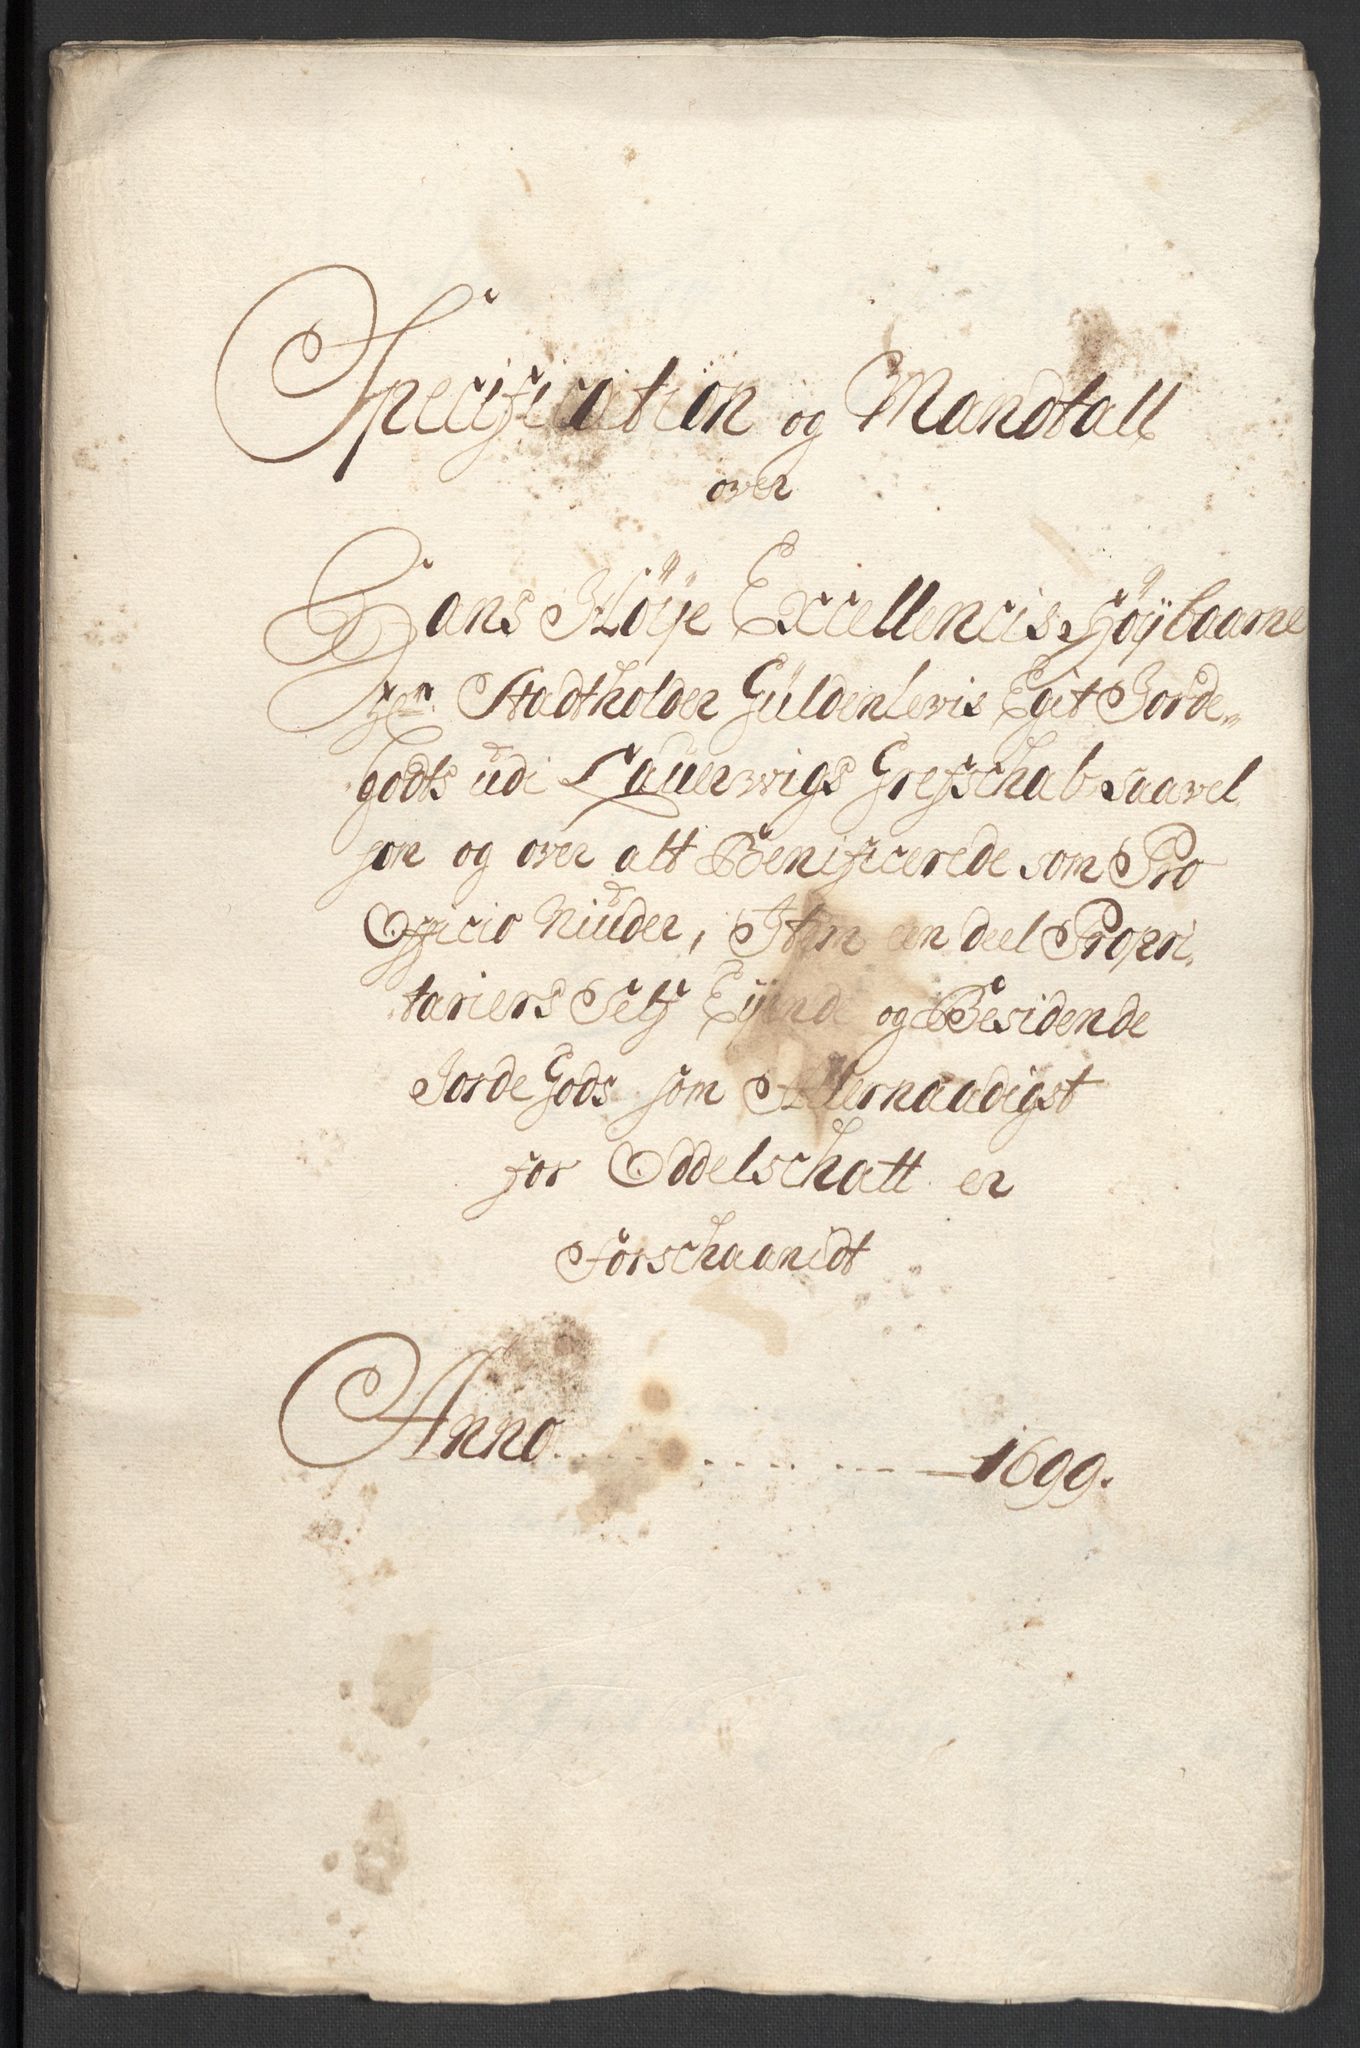 Specification og Mandtall
over
Hans Høije Excellencis Høÿbaarne
Hr. Stadtholder Güldenlevis Eget Jorde-
godts udi Lauervigs Grefschab saavel
som og over alt Benificerede som Pro
Officio Niuder, Item een deel Propri-
tariers Self Eÿende og Besidende
Jorde Gods som Allernaadigst
for Oddelschatt er
forschaanidt
Anno 1699.